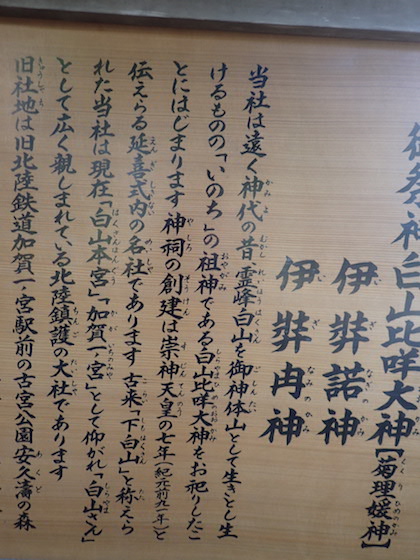 御祭神 白山比咩大神【菊理媛神】
伊弉諾神
伊弉冉神
当社は遠く神代の昔、霊峰白山を御神体山として生きとし生
けるものの「いのち」の祖神である白山比咩大神をお祀りしたこ
とにはじまります 神祠の創建は崇神天皇の七年(紀元前九一年)と
伝えらる延喜式内の名社であります 古来「下白山」と称えら
れた当社は現在「白山本宮」「加賀一ノ宮」として仰がれ「白山さん」
として広く親しまれている北陸鎮護の大社であります
旧社地は旧北陸鉄道加賀一ノ宮駅前の古宮公園安久濤の森